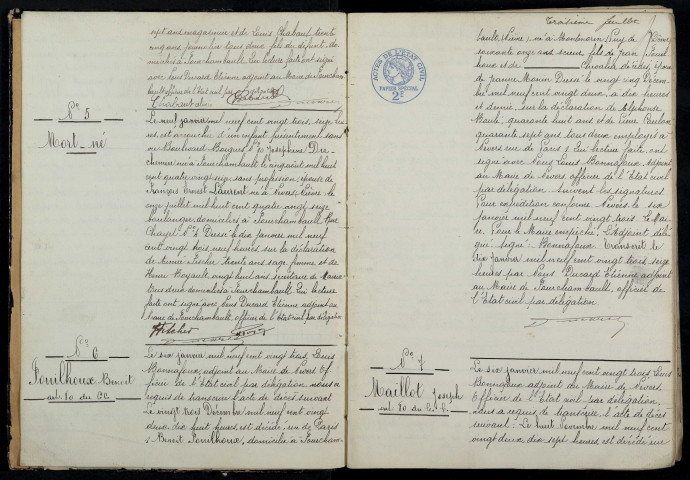 sept ans magasineur et de Louis Chabaud trente
cinq ans journalier tous deux fils du défunt, do-
miciliés à Fourchambault. Lecture faite ont signé
avec nous Ducard Etienne adjoint au Maire de Fourcham-
bault officier de l'Etat civil par délégation
N° 5
Mort-né
Le neuf janvier mil neuf cent vingt trois, sept heu-
res est accouchée d'un enfant présentement sans
vie Boulevard N° 70 Joséphine
née à Fourchambault le cinq août mil huit
cent quatre vingt sans profession, épouse de
François Ernest Laurent né à Nevers Nièvre le
onze juillet mil huit cent quatre vingt seize
boulanger, domiciliés à Fourchambault Rue
Chazel N° 2 Dressé le dix janvier mil neuf
cent vingt trois, neuf heures sur la déclaration
de Fischer trente ans sage femme et de
Henri vingt huit ans secrétaire de Mairie
tous deux domiciliés à Fourchambault. Qui lecture
faite ont signé avec Nous Ducard Etienne adjoint au
Maire de Fourchambault, officier de l'Etat civil par délégation
N° 6
Pouilhoux Benoit
art. 80 du C.C.
Le six janvier mil neuf cent vingt trois, Louis
Bonnafoux, adjoint au Maire de Nevers of-
ficier de l'Etat civil par délégation nous a
requis de transcrire l'acte de décès suivant
Le vingt trois Décembre mil neuf cent vingt
deux, dix huit heures, est décédé rue de Paris
Benoit Pouilhoux, domicilié à Fourcham-
Troisième feuillet
bault (Nièvre) né à Montmorin Puy de Dôme
soixante onze ans scieur fils de Jean Pouil-
houx et de époux
de Jeanne Monin Dressé le vingt cinq Décem-
bre mil neuf cent vingt deux, à dix heures
et demie, sur la déclaration de Alphonse
quarante huit ans et de
quarante sept ans tous deux employés à
Nevers rue de Paris Qui lecture faite ont
signé avec Nous Louis Bonnafoux Adjoint
au Maire de Nevers officier de l'Etat civil
par délégation Suivent les signatures
Pour expédition conforme Nevers le six
janvier mil neuf cent vingt trois
Pour le Maire empêché L'Adjoint délé-
gué signé: Bonnafoux Transcrit le
dix janvier mil neuf cent vingt trois seize
heures par Nous Ducard Etienne adjoint
au Maire de Fourchambault, officier de
l'Etat civil par délégation
ACTES DE L'ETAT CIVIL
PAPIER SPECIAL
2F
N° 7
Maillot Joseph
art. 80 du C.C.
Le six janvier mil neuf cent vingt trois, Louis
Bonnafoux adjoint au Maire de Nevers
Officier de l'Etat civil par délégation
Nous a requis de transcrire l'acte de décès
suivant: Le huit Novembre mil neuf cent
vingt deux, dix sept heures, est décédé rue